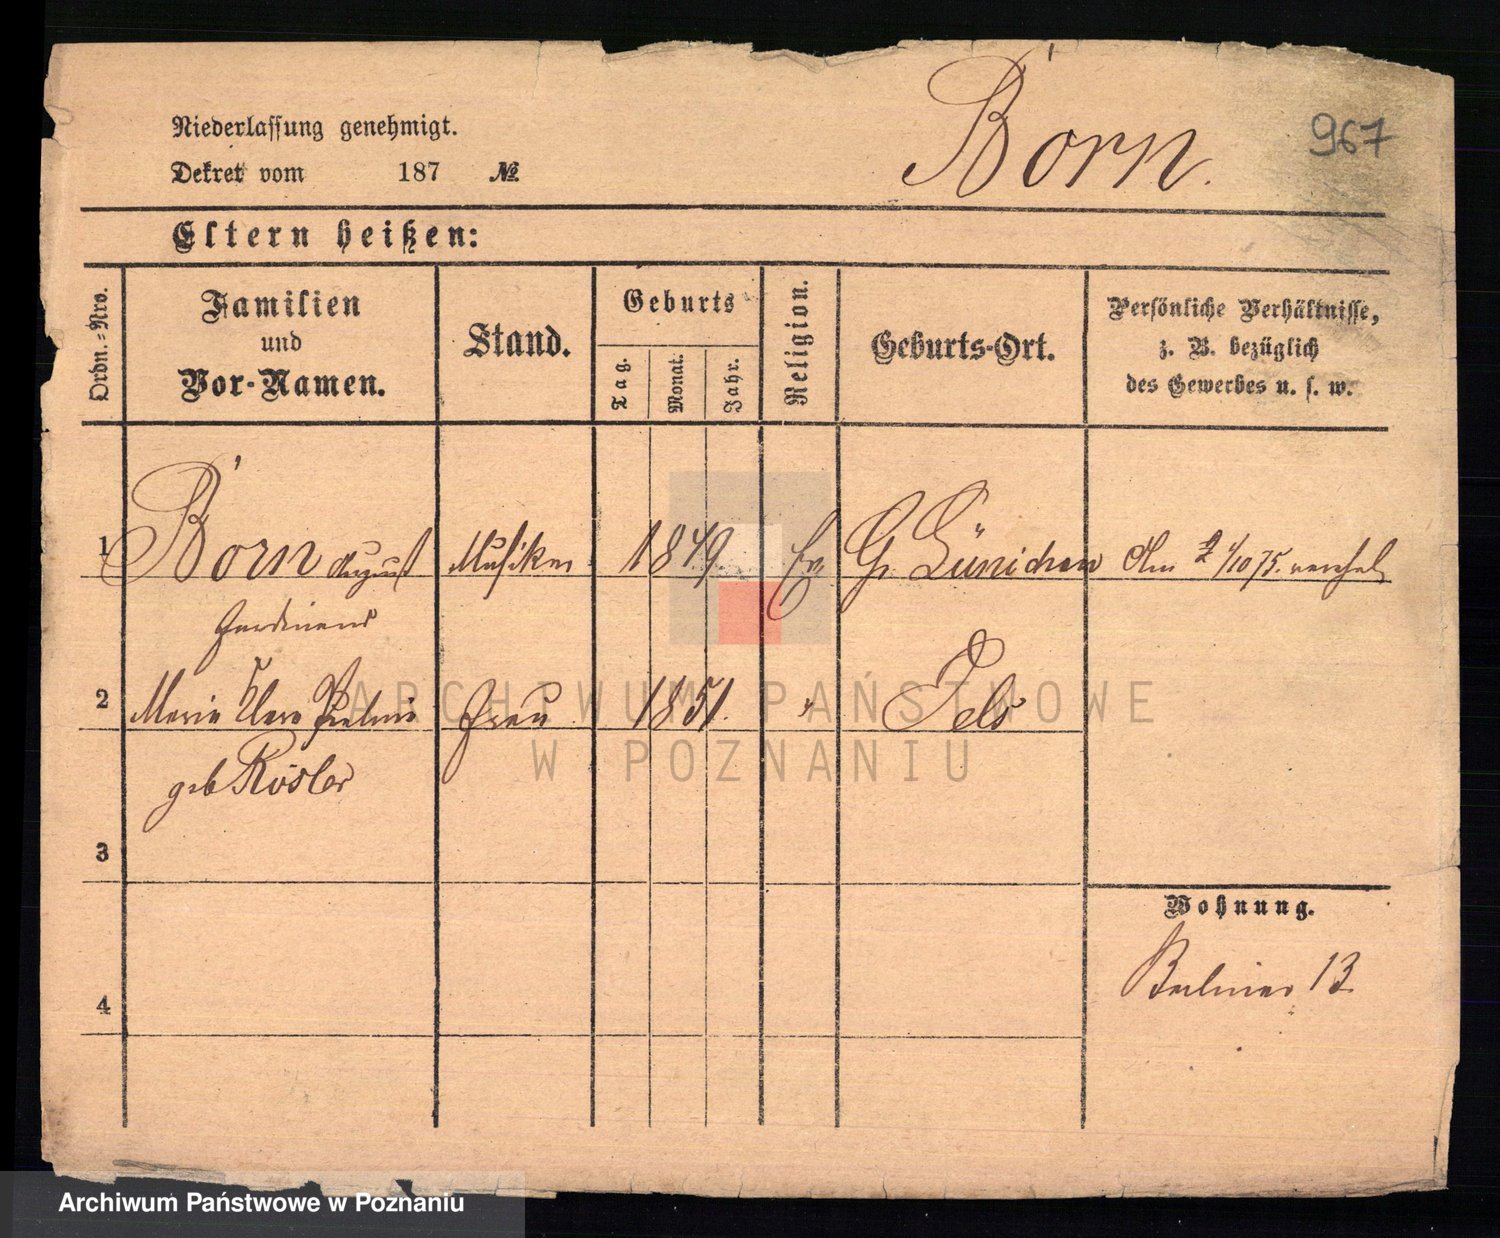 Born.
967
Niederlassung genehmigt.
Dekret vom 187 №
Eltern heißen:
Ordn.-Nro.
Familien und Vor-Namen.
Stand.
Geburts
Tag.
Monat.
Jahr.
Religion.
Geburts-Ort.
Persönliche Verhältnisse,
z. B. bezüglich
des Gewerbes u. s. w.
1 Born August Musiker 1849. Ev. Gr. Lünichen Am 2/10 75.
Ferdinand
2 Marie Clara frau 1851. " Oels
geb Rösler
3
4
Wohnung.
Berliner 13
ARCHIWUM PAŃSTWOWE
W POZNANIU
Archiwum Państwowe w Poznaniu